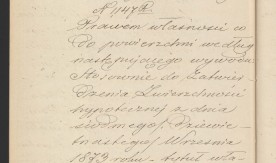 N 1147
Prawem własności w
do powierzchni według
następującego wywodu
Stosownie do Zatwier
dzenia Zwierzchności
hypotecznej z dnia
siedmego Dziewię-
tnastego Września
1873 roku - tytuł wła-